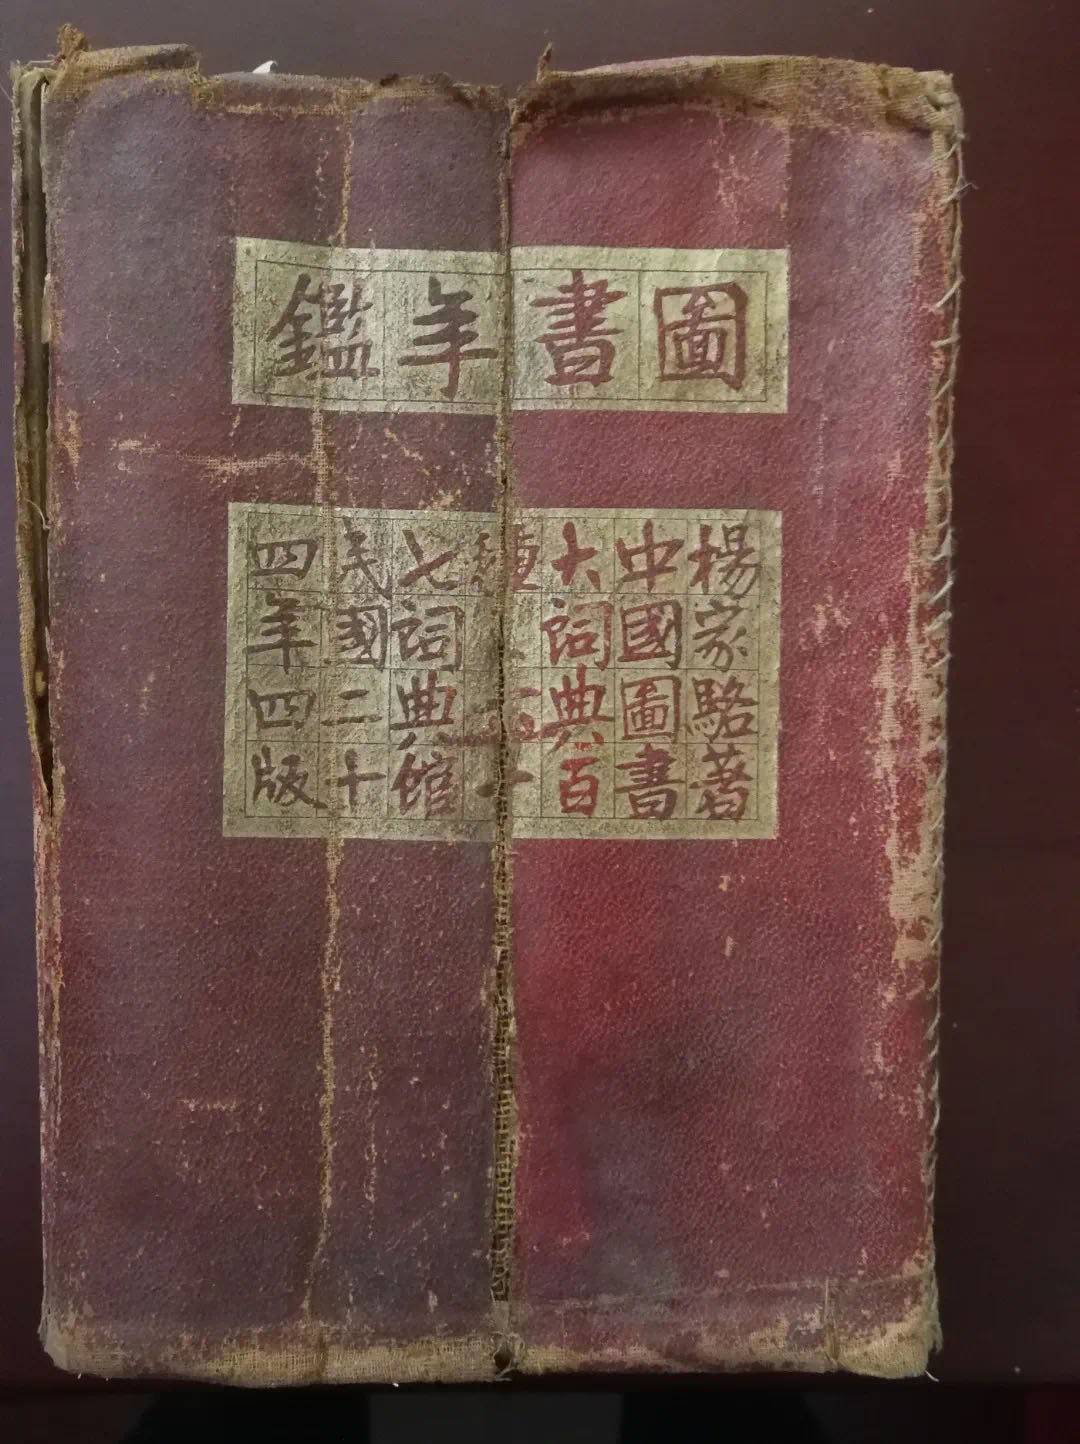 圖書年鑑
楊家駱著
中國圖書
大詞典百
種五十
七詞典館
民國二十
四年四版